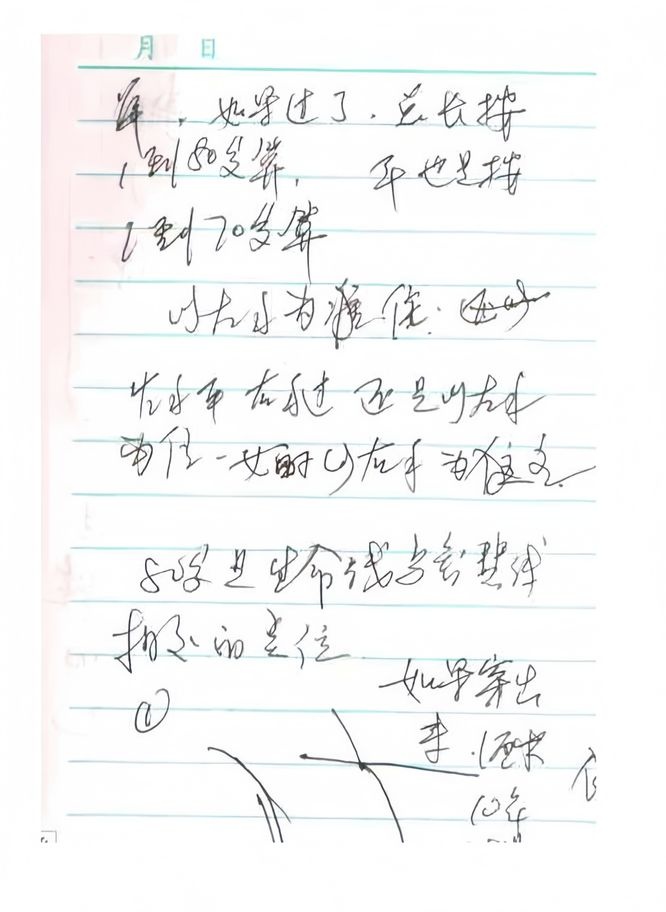 月 日
算，如果过了．总长按
1到80岁算， 平也是按
1到70岁算
以左手为准
左手 右手过 还是以左手
为 一女的以右手为主
80岁是生命线与智慧线
相交的定位
① 如果穿出
来．1厘米
10年